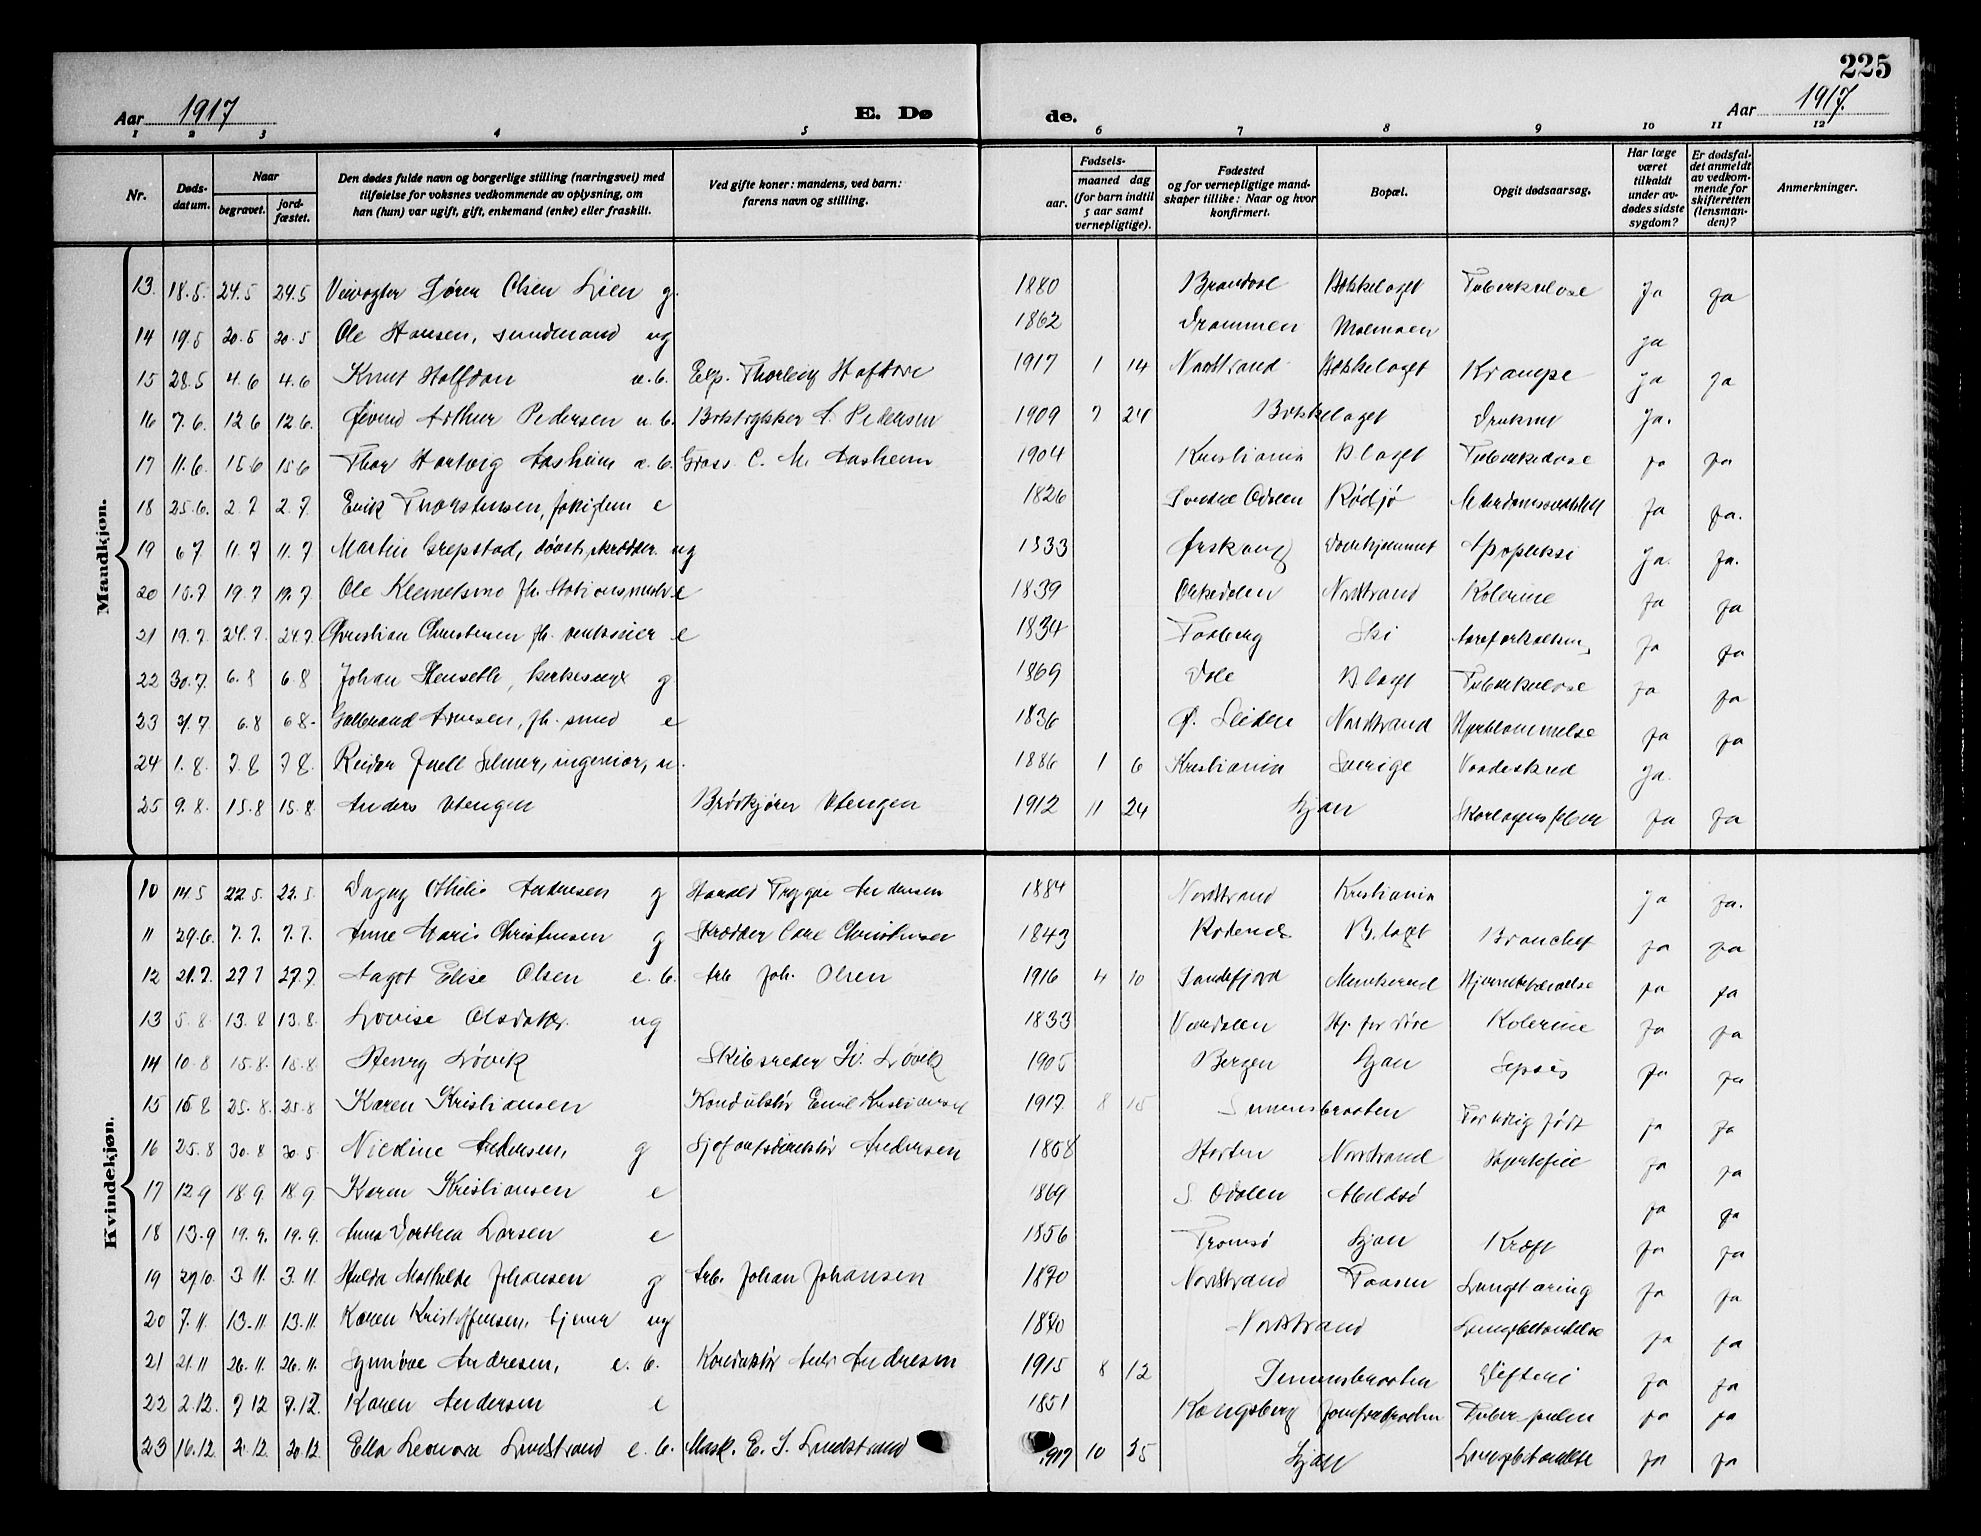 225
Aar 1917
E. Dø
de.
Aar 1917.
1 2 3 4 5 6 7 8 9 10 11 12
Nr.
Døds-
datum.
Naar
begravet.
jord-
fæstet.
Den dødes fulde navn og borgerlige stilling (næringsvei) med
tilføielse for voksnes vedkommende av oplysning, om
han (hun) var ugift, gift, enkemand (enke) eller fraskilt.
Ved gifte koner: mandens, ved barn:
farens navn og stilling.
Fødsels-
aar.
maaned dag
(for barn indtil
5 aar samt
vernepligtige).
Fødested
og for vernepligtige mand-
skaper tillike: Naar og hvor
konfirmert.
Bopæl.
Opgit dødsaarsag.
Har læge
været
tilkaldt
under av-
dødes sidste
sygdom?
Er dødsfal-
det anmeldt
av vedkom-
mende for
skifteretten
(lensman-
den)?
Anmerkninger.
Mandkjøn.
13. 18.5. 24.5 24.5 Søren Olsen Lien g. 1880 Bækkelaget Tuberkulose Ja Ja
14 19.5 30.5 30.5 Ole Hansen, ug 1862 Drammen Ja
15 28.5 4.6 4.6 Knut Halfdan u.b. 1917 1 14 Nordstrand Bækkelaget Krampe Ja Ja
16 7.6. 12 6 12 6. Øivind Arthur Pedersen u.b. Pedersen 1909 7 24 Bækkelaget Druknet Ja.
17 11.6. 15 6 15 6 Thor Aasheim Gross. C. M. Aasheim 1904 Kristiania B.laget Tuberkulose Ja Ja
18 25.6. 2.7 2.7. Erik Thorstensen, e 1826 Søndre Odalen Ja Ja.
19 6 7 11.7 11.7 Martin Grepstad, døvst. skrædder ug 1833 Ørskoug Apopleksi Ja. Ja.
20 15.7 19.7 19.7 Ole Klemetsen fh. Stationsmester e 1839 Orkedalen Nordstrand Kolerine Ja Ja
21 19.7. 24.7. 24.7. Christian Christensen fh. e 1834 Faaberg Ski Aareforkalkning Ja Ja
22 30.7. 6.8 6.8 Johan Henseth, g 1869 B.laget Tuberkulose Ja Ja
23 31.7 6.8 6 8. Arnesen, fh. smed e 1836 Ø. Slidre Nordstrand Hjertelammelse Ja Ja
24 1.8. 7.8 7 8. Reidar Juell ingeniør, u. 1886 1 6 Kristiania Sverige Vaadeskud Ja.
25 9.8. 15.8 15.8. Anders Utengen Brødkjører Utengen 1912 11 24 Ljan Skarlagensfeber Ja Ja
Kvindekjøn.
10 14.5 22.5. 22.5. Dagny Othilie Andresen g Harald Trygve Andersen 1884 Nordstrand Kristiania Ja Ja.
11 29.6. 7.7. 7.7. Anne Marie Christensen g Skrædder Carl Christensen 1843 Rødenes B.laget Bronchit Ja Ja
12 21.7. 27 7 27.7 Aagot Elise Olsen e.b. Arb. Joh. Olsen 1916 4 10 Sandefjord Munkerud Hjernebetændelse Ja Ja
13 5.8. 13.8 13.8. Lovise Olsdatter ug 1833 Hj. for døve Kolerine Ja Ja
14 10.8 15.8. 15.8. Henry Løvik Skibsreder Løvik 1905 Bergen Ljan Sepsis Ja Ja
15 15 8 25.8. 25.8 Karen Kristiansen Konduktør Emil Kristiansen 1917 8 15 Simensbraaten For tidlig født Ja Ja
16 25.8 30.8 30.5 Nicoline Andersen, g Andersen 1858 Horten Nordstrand Hjertefeil Ja Ja
17 12.9 18 9. 18 9 Karen Kristiansen e 1869 S. Odalen Abildsø Ja Ja
18 13.9 19.9. 19.9. Anna Dorthea Larsen e 1856 Tromsø Ljan Kræft Ja Ja
19 29.10. 3.11. 3.11. Hulda Mathilde Johansen g Arb. Johan Johansen 1870 Nordstrand Lungetæring Ja Ja
20 7.11. 13.11 13.11. Karen Kristoffersen, tjener ug 1870 Nordstrand Lungebetændelse Ja Ja
21 21.11 26.11. 26.11. Synnøve Andresen, e.b. Konduktør Andr. Andresen 1915 8 12 Simensbraaten Difteri Ja Ja
22 2.12. 9 12 9.12. Karen Andersen e 1851 Kongsberg Jomfrubraaten Tuber. pulm Ja Ja
23 16.12. 20.12. 20.12. Ella Leonora Lundstrand e.b. Mask. E. J. Lundstrand 1917 10 25 Ljan Lungebetændelse Ja Ja